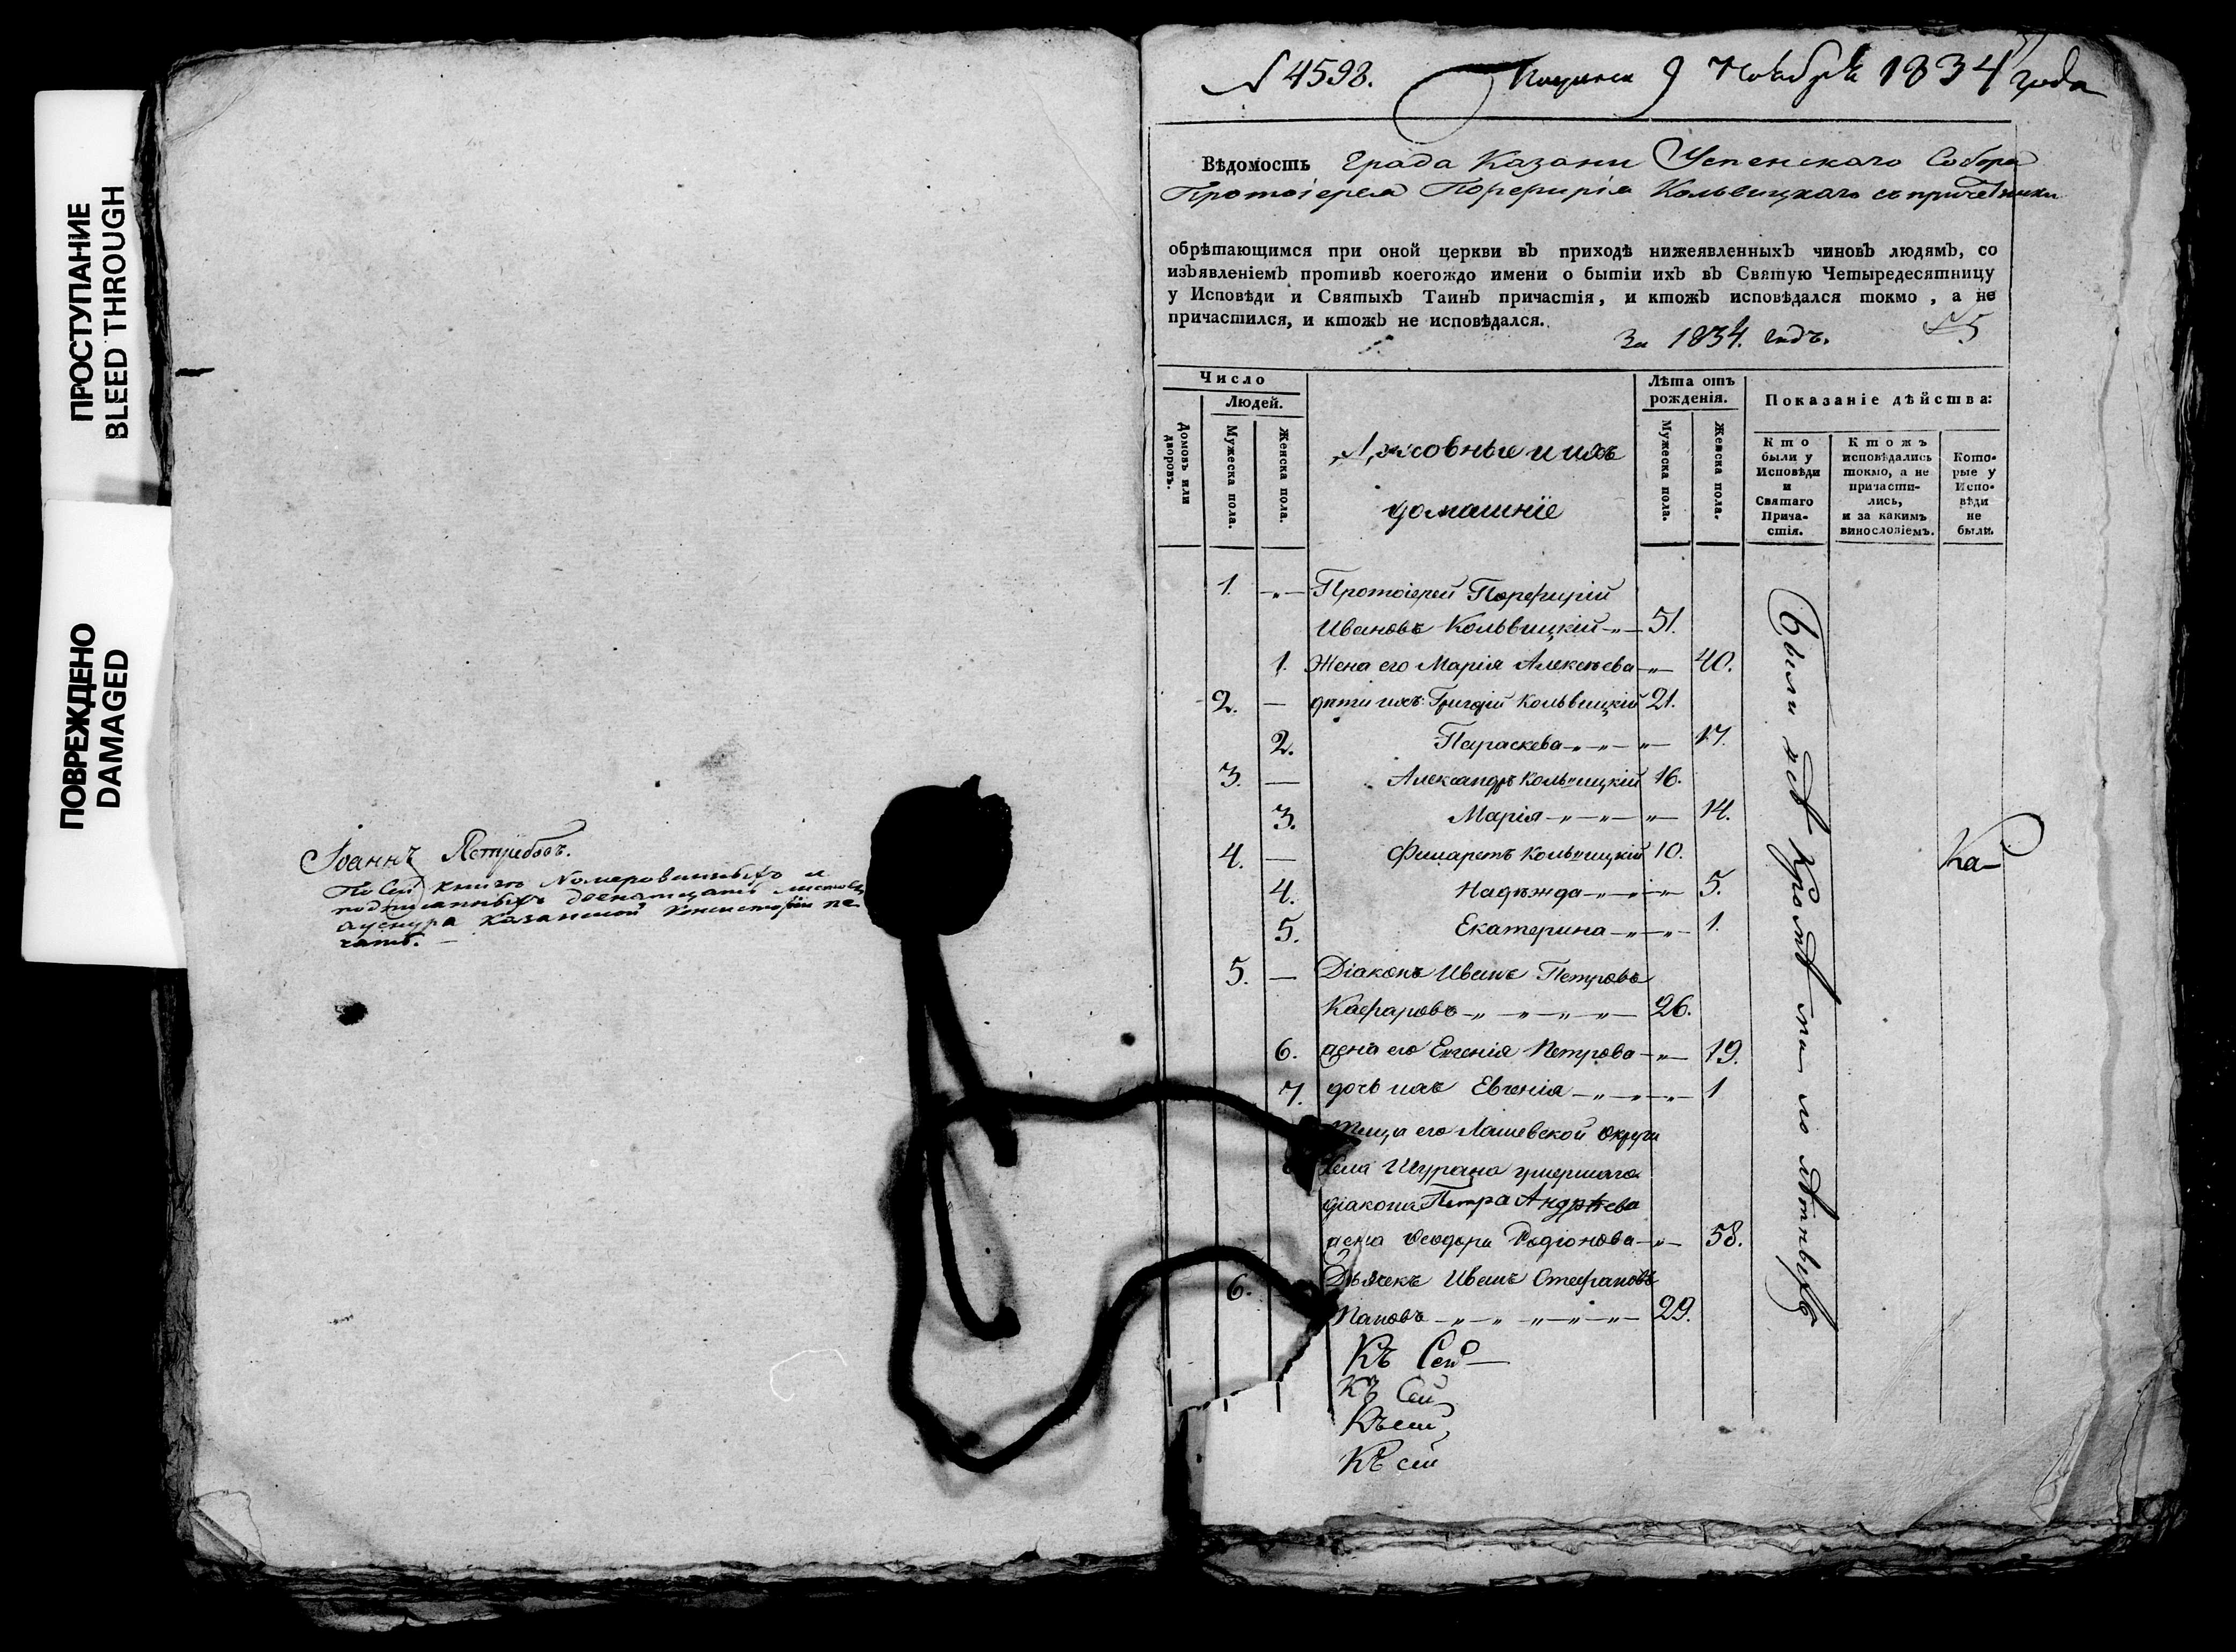 ПРОСТУПАНИЕ
BLEED THROUGH
ПОВРЕЖДЕНО
DAMAGED
Іоаннъ Ястребовъ.
По сей книгѣ Номерованныхъ и
подписанныхъ двенатцать листовъ
Казанской Консисторіи пе
чать. —
N 4598. 9 Ноября 1834 года
Вѣдомость Града Казани Успенскаго Собора
Протоіерея Порфирія Кольвицкаго съ причетники
обрѣтающимся при оной церкви въ приходѣ нижеявленныхъ чиновъ людямъ, со
изъявленіемъ противъ коегождо имени о бытіи ихъ въ Святую Четыредесятницу
у Исповѣди и Святыхъ Таинъ причастія, и ктожъ исповѣдался токмо, а не
причастился, и ктожъ не исповѣдался.
За 1834. годъ. N 5
Число
Людей.
Домовъ или дворовъ.
Мужеска пола.
Женска пола.
Духовные и ихъ
домашніе
Лѣта отъ
рожденія.
Мужеска пола.
Женска пола.
Показаніе дѣйства:
Кто
были у
Исповѣди
и
Святаго
Прича-
стія.
Ктожъ
исповѣдались
токмо, а не
причасти-
лись,
и за какимъ
винословіемъ.
Кото-
рые у
Испо-
вѣди
не
были.
1. —„— Протоіерей Порфирій
Ивановъ Кольвицкій —„— 51.
1. Жена его Марія Алексѣева —„— 40.
2. — дѣти ихъ Григорій Кольвицкій 21.
2. Параскева —„—„—„— 17.
3. — Александръ Кольвицкій 16.
3. Марія —„—„—„— 14.
4. — Филаретъ Кольвицкій 10.
4. Надѣжда —„—„—„— 5.
5. Екатерина —„—„— 1.
5. — Діаконъ Иванъ Петровъ
Кафаровъ —„—„—„—„— 26.
6. жена его Евгенія Петрова —„— 19.
7. дочь ихъ Евгенія —„—„—„— 1
его Лаишевской округи
села Шурана умершаго
діакона Петра Андрѣева
жена Ѳеодора Родіонова —„— 58.
6. Дьячекъ Иванъ Стефановъ
Поповъ —„—„ „—„—„— 29.
Были всѣ кромѣ малолѣтныхъ
Ка—
Къ Сей —
Къ Сей
Къ сей
Къ сей